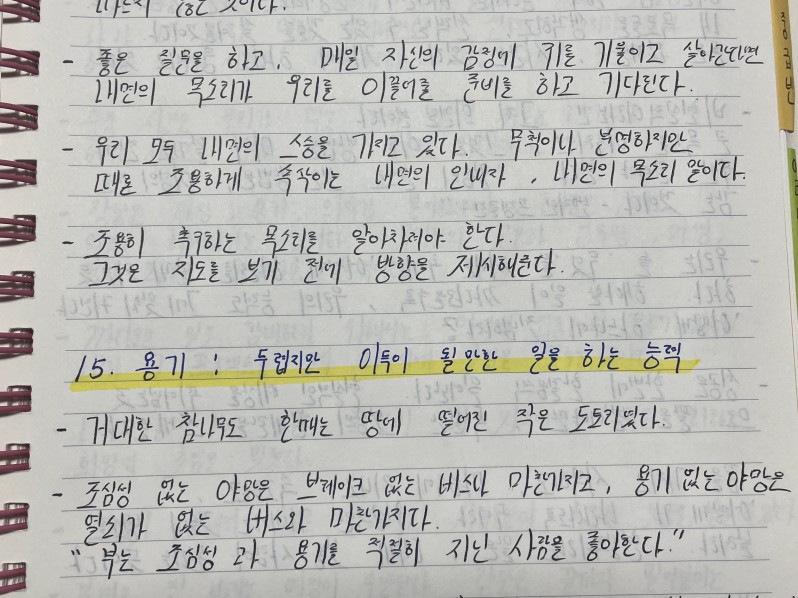 따르지 않은 것이다.
- 좋은 질문을 하고, 매일 자신의 감정에 귀를 기울이고 살아간다면
내면의 목소리가 우리를 이끌어줄 준비를 하고 기다린다.
- 우리 모두 내면의 스승을 가지고 있다. 무척이나 분명하지만
때로 조용하게 속삭이는 내면의 안내자, 내면의 목소리 말이다.
- 조용히 촉구하는 목소리를 알아차려야 한다.
그것은 지도를 보기 전에 방향을 제시해준다.
15. 용기 : 두렵지만 이득이 될 만한 일을 하는 능력
- 거대한 참나무도 한때는 땅에 떨어진 작은 도토리였다.
- 조심성 없는 야망은 브레이크 없는 버스나 마찬가지고, 용기 없는 야망은
열쇠가 없는 버스와 마찬가지다.
"부는 조심성과 용기를 적절히 지닌 사람을 좋아한다."
중급반